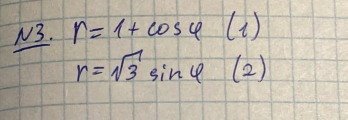 N3. r = 1 + cosφ (1)
r = √3 sinφ (2)